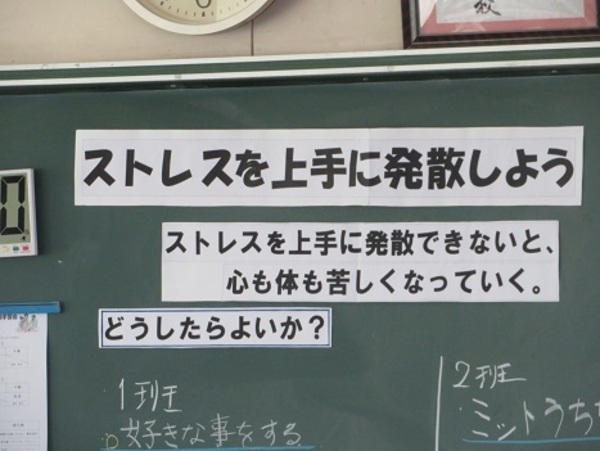 ストレスを上手に発散しよう
ストレスを上手に発散できないと、
心も体も苦しくなっていく。
どうしたらよいか？
1班
好きな事をする
2班
・ミットうち